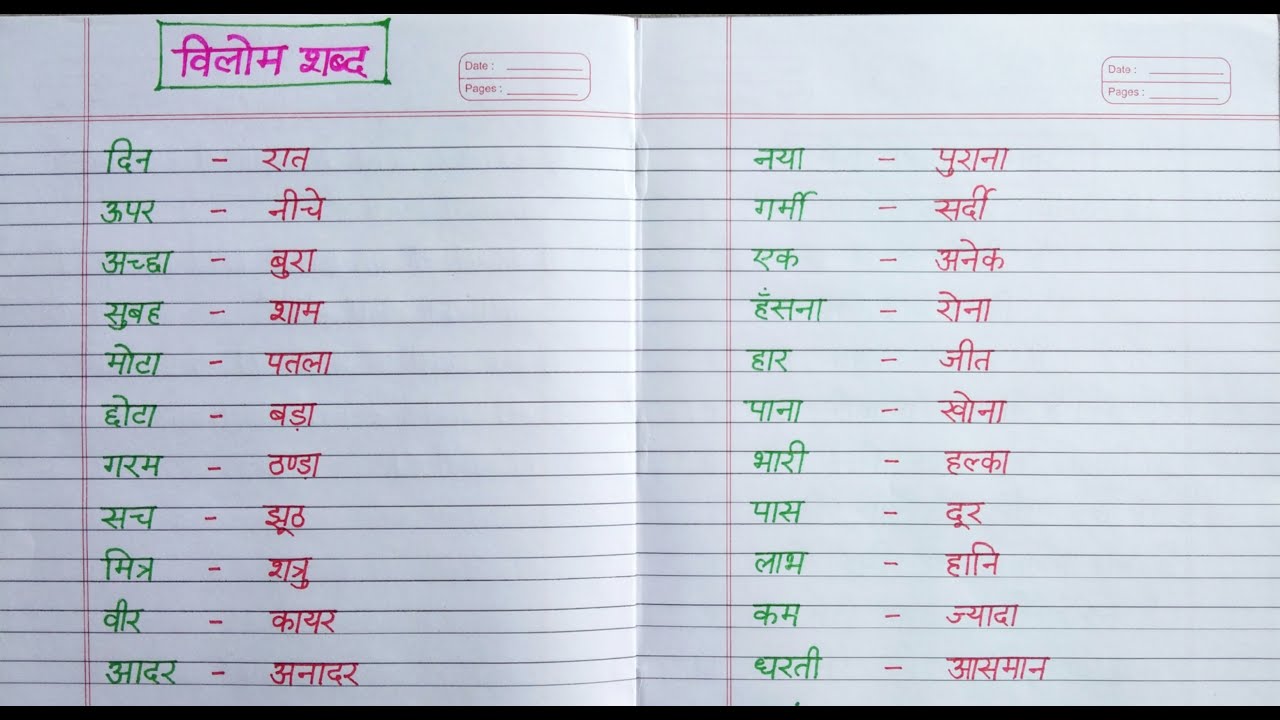 विलोम शब्द
Date :
Pages :
दिन - रात
ऊपर - नीचे
अच्छा - बुरा
सुबह - शाम
मोटा - पतला
छोटा - बड़ा
गरम - ठण्डा
सच - झूठ
मित्र - शत्रु
वीर - कायर
आदर - अनादर
Date :
Pages :
नया - पुराना
गर्मी - सर्दी
एक - अनेक
हँसना - रोना
हार - जीत
पाना - खोना
भारी - हल्का
पास - दूर
लाभ - हानि
कम - ज्यादा
धरती - आसमान